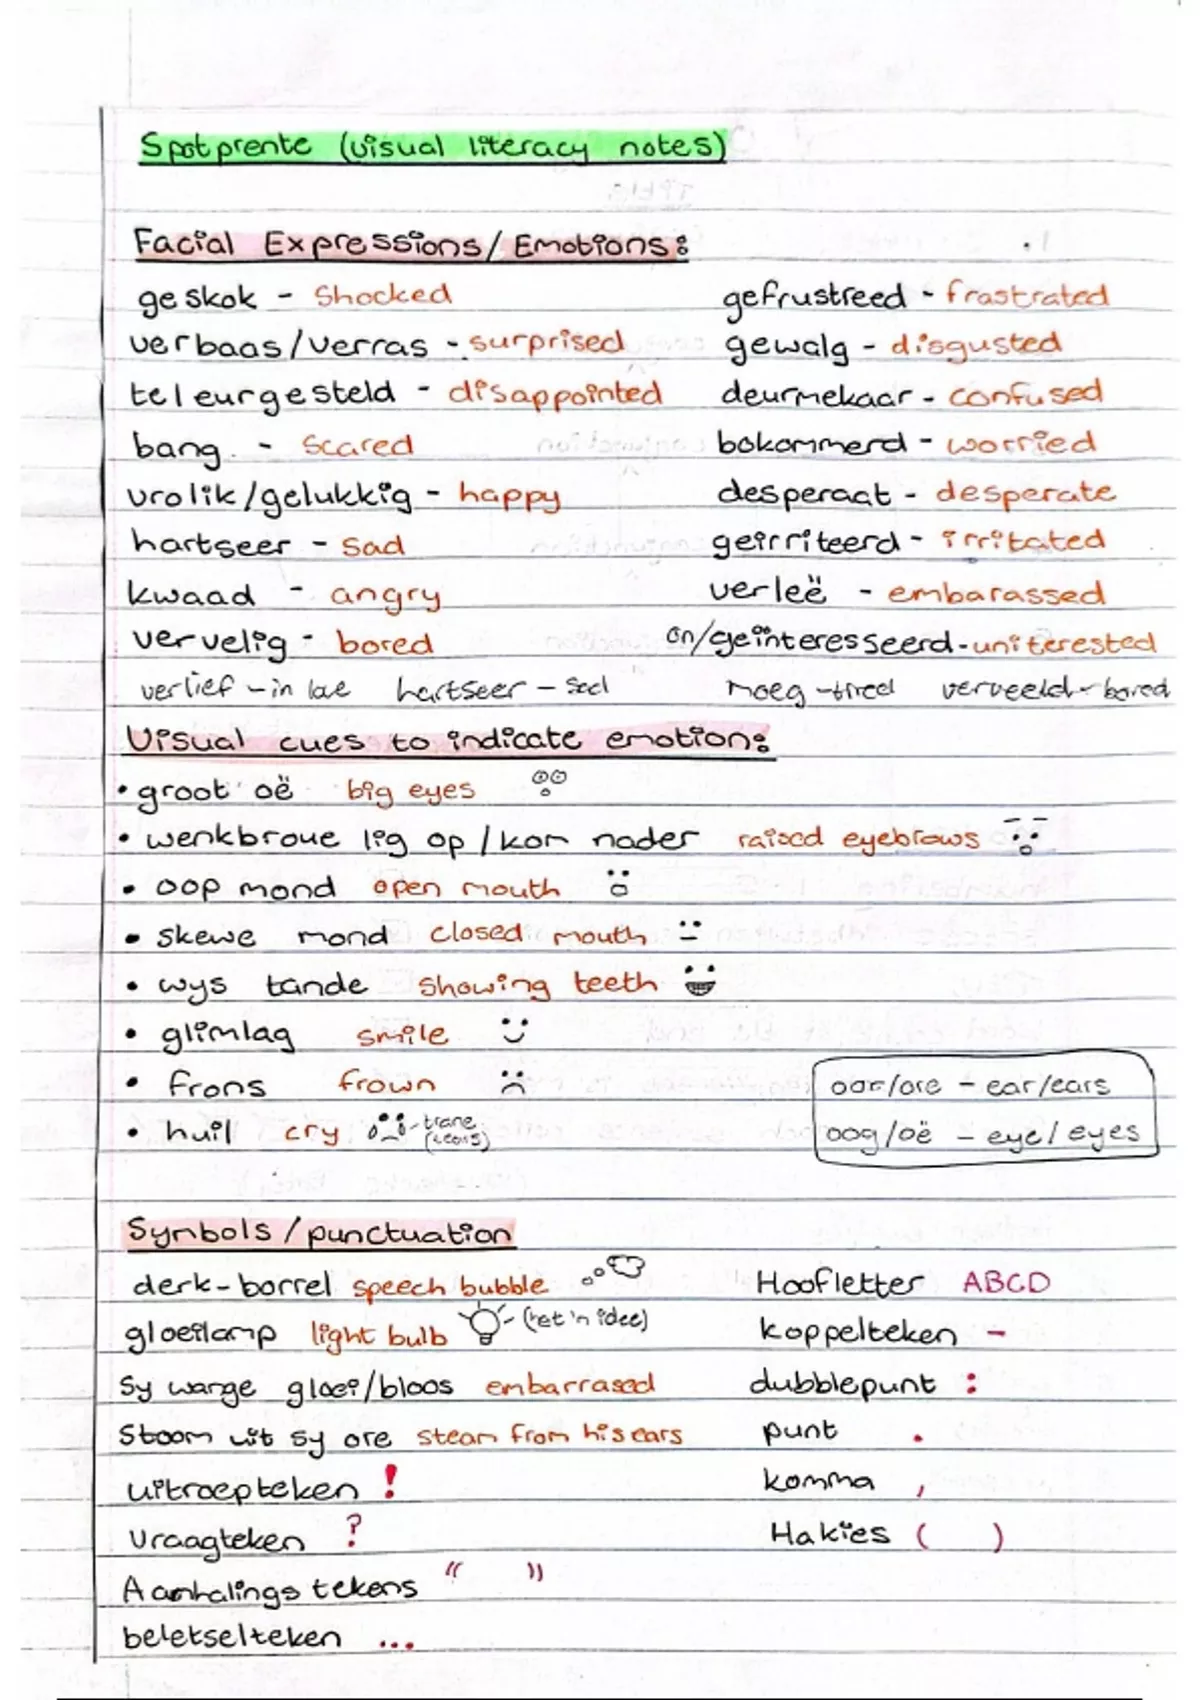 Spotprente (visual literacy notes)
Facial Expressions/Emotions:
geskok - Shocked
verbaas/verras - surprised
teleurgesteld - disappointed
bang. - Scared
vrolik/gelukkig - happy
hartseer - sad
kwaad - angry
vervelig - bored
gefrustreed - frastrated
gewalg - disgusted
deurmekaar - confused
bokommerd - worried
desperaat - desperate
geïrriteerd - irritated
verleë - embarassed
on/geïnteresseerd - uniterested
verlief - in love hartseer - sad moeg - tired verveeld - bored
Visual cues to indicate emotion:
• groot oë big eyes
• wenkbroue lig op / kom nader raised eyebrows
• oop mond open mouth
• skewe mond closed mouth
• wys tande showing teeth
• glimlag smile
• frons frown
• huil cry - trane (tears)
oor/ore - ear/ears
oog/oë - eye/eyes
Symbols / punctuation
denk-borrel speech bubble
gloeilamp light bulb - (het 'n idee)
Sy wange gloei/bloos embarrased
Stoom uit sy ore steam from his ears
uitroepteken !
Vraagteken ?
Aanhalings tekens “ ”
beletselteken ...
Hoofletter ABCD
koppelteken -
dubblepunt :
punt .
komma ,
Hakies ( )